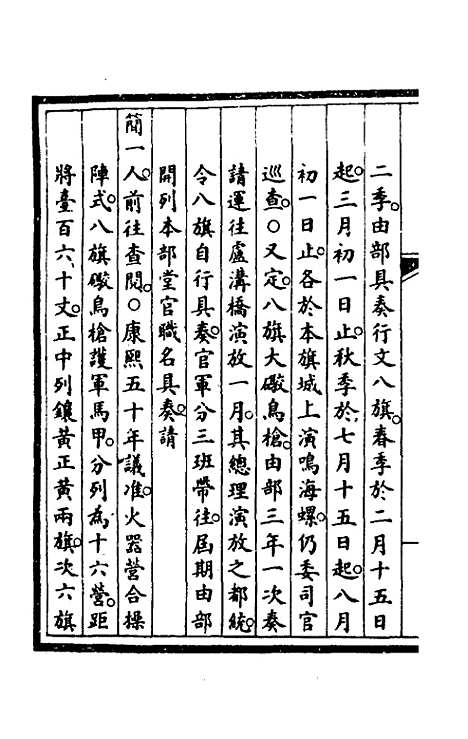 二季。由部具奏行文八旗。春季於二月十五日
起。三月初一日止。秋季於七月十五日起。八月
初一日止。各於本旗城上演鳴海螺。仍委司官
巡查。○又定。八旗大礮鳥槍。由部三年一次奏
請運往盧溝橋演放一月。其總理演放之都統。
令八旗自行具奏。官軍分三班帶往。屆期由部
開列本部堂官職名具奏。請
簡一人。前往查閱。○康熙五十年議准。火器營合操
陣式。八旗礮鳥槍護軍馬甲。分列為十六營。距
將臺百六十丈。正中列鑲黃正黃兩旗。次六旗